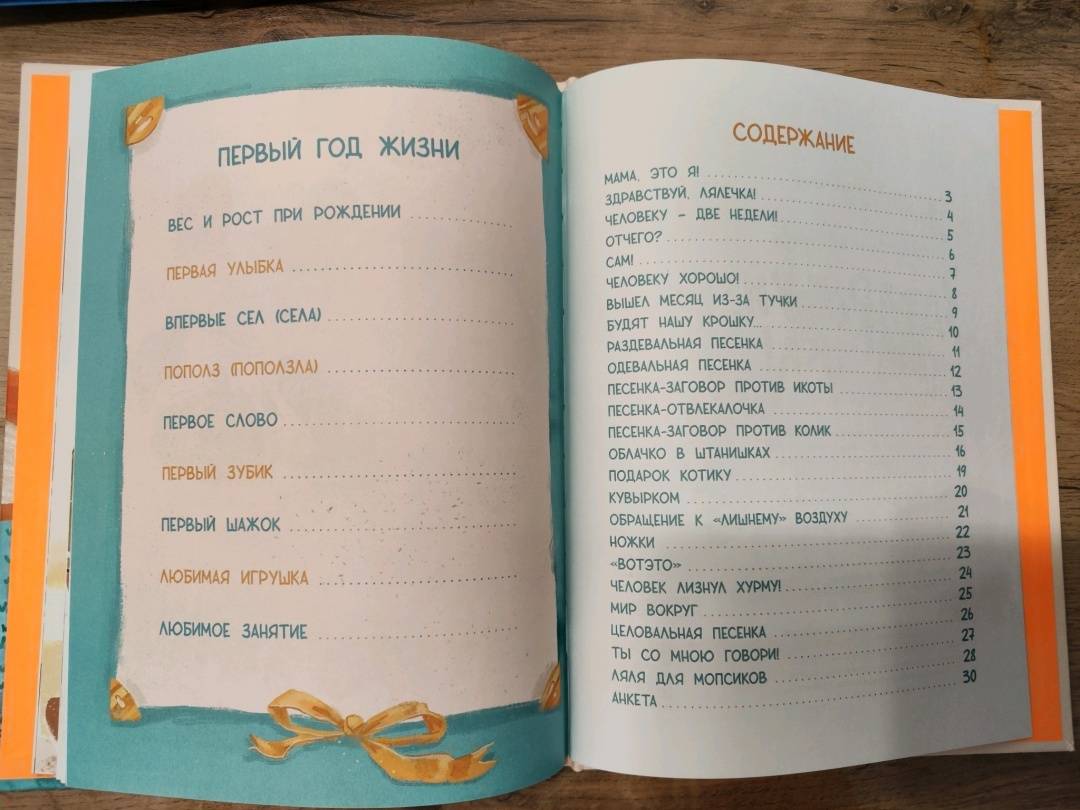 ПЕРВЫЙ ГОД ЖИЗНИ
ВЕС И РОСТ ПРИ РОЖДЕНИИ
ПЕРВАЯ УЛЫБКА
ВПЕРВЫЕ СЕЛ (СЕЛА)
ПОПОЛЗ (ПОПОЛЗЛА)
ПЕРВОЕ СЛОВО
ПЕРВЫЙ ЗУБИК
ПЕРВЫЙ ШАЖОК
ЛЮБИМАЯ ИГРУШКА
ЛЮБИМОЕ ЗАНЯТИЕ
СОДЕРЖАНИЕ
МАМА, ЭТО Я! 3
ЗДРАВСТВУЙ, ЛЯЛЕЧКА! 4
ЧЕЛОВЕКУ – ДВЕ НЕДЕЛИ! 5
ОТЧЕГО? 6
САМ! 7
ЧЕЛОВЕКУ ХОРОШО! 8
ВЫШЕЛ МЕСЯЦ ИЗ-ЗА ТУЧКИ 9
БУДЯТ НАШУ КРОШКУ... 10
РАЗДЕВАЛЬНАЯ ПЕСЕНКА 11
ОДЕВАЛЬНАЯ ПЕСЕНКА 12
ПЕСЕНКА-ЗАГОВОР ПРОТИВ ИКОТЫ 13
ПЕСЕНКА-ОТВЛЕКАЛОЧКА 14
ПЕСЕНКА-ЗАГОВОР ПРОТИВ КОЛИК 15
ОБЛАЧКО В ШТАНИШКАХ 16
ПОДАРОК КОТИКУ 19
КУВЫРКОМ 20
ОБРАЩЕНИЕ К «ЛИШНЕМУ» ВОЗДУХУ 21
НОЖКИ 22
«ВОТЭТО» 23
ЧЕЛОВЕК ЛИЗНУЛ ХУРМУ! 24
МИР ВОКРУГ 25
ЦЕЛОВАЛЬНАЯ ПЕСЕНКА 26
ТЫ СО МНОЮ ГОВОРИ! 27
ЛЯЛЯ ДЛЯ МОПСИКОВ 28
АНКЕТА 30